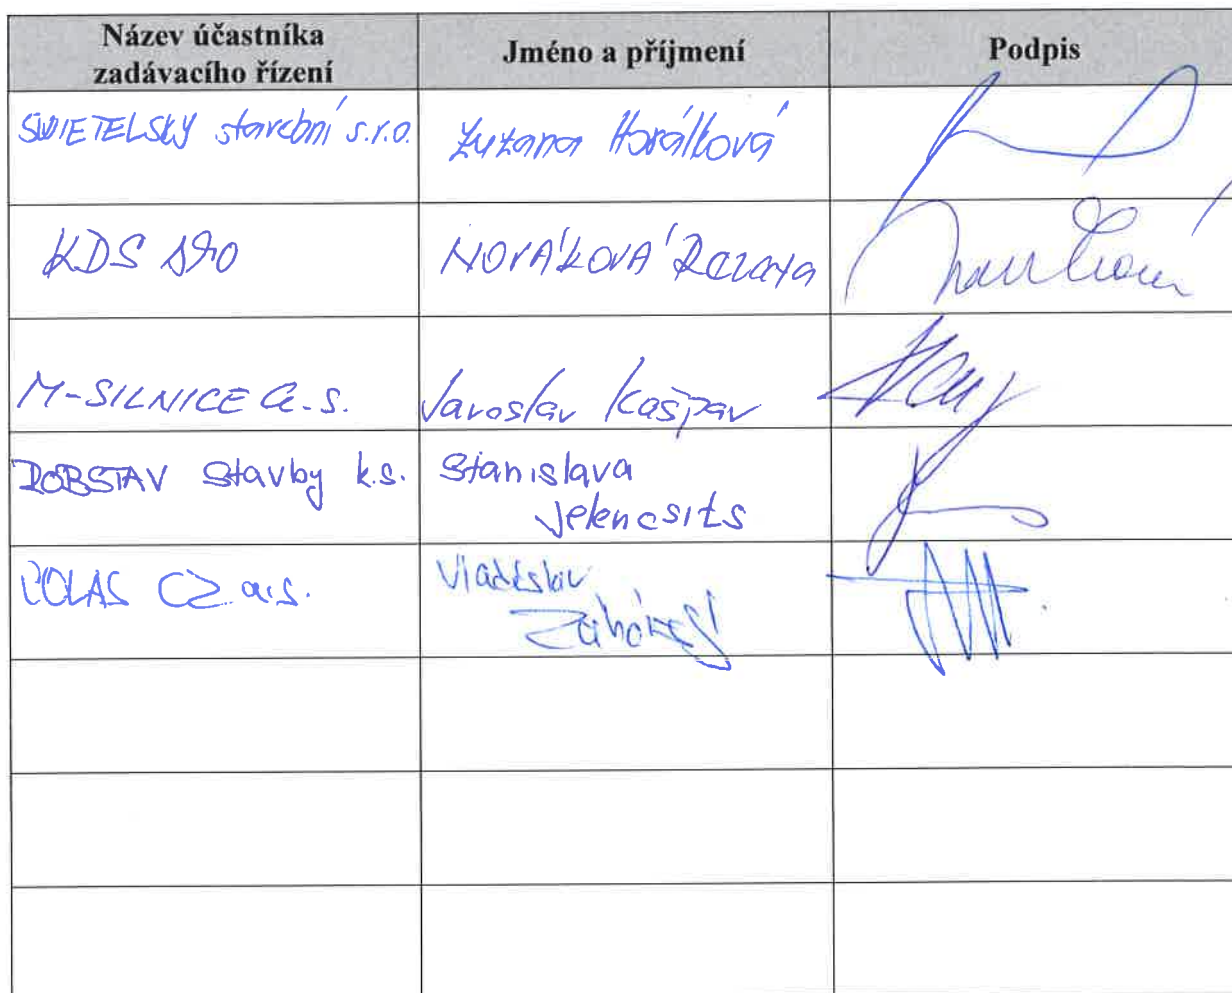 Název účastníka
zadávacího řízení
Jméno a příjmení
Podpis
SWIETELSKY stavební s.r.o.
Zuzana Horálková
KDS sro
NOVÁKOVÁ Renata
M-SILNICE a.s.
Jaroslav Kašpar
DOBSTAV stavby k.s.
Stanislava
Jelencsits
COLAS CZ a.s.
Vladislav